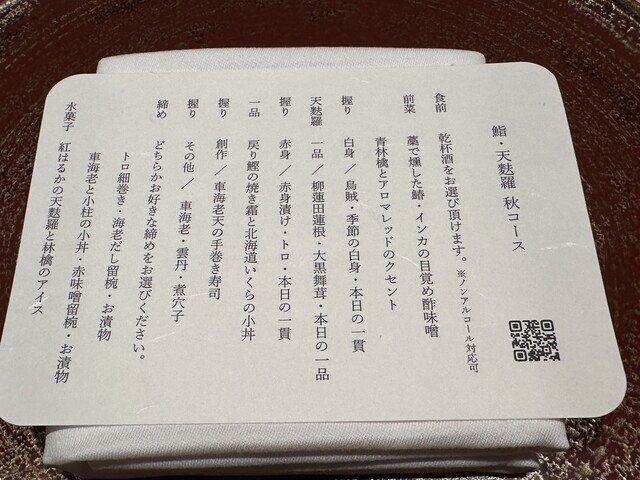 鮨・天麩羅 秋コース
食前 乾杯酒をお選び頂けます。※ノンアルコール対応可
前菜 藁で燻した鰆・インカの目覚め酢味噌
青林檎とアロマレッドのクセント
握り 白身／烏賊・季節の白身・本日の一貫
天麩羅 一品／柳蓮田蓮根・大黒舞茸・本日の一品
握り 赤身／赤身漬け・トロ・本日の一貫
一品 戻り鰹の焼き霜と北海道いくらの小丼
握り 創作／車海老天の手巻き寿司
握り その他／車海老・雲丹・煮穴子
締め どちらかお好きな締めをお選びください。
トロ細巻き・海老だし留椀・お漬物
車海老と小柱の小丼・赤味噌留椀・お漬物
水菓子 紅はるかの天麩羅と林檎のアイス